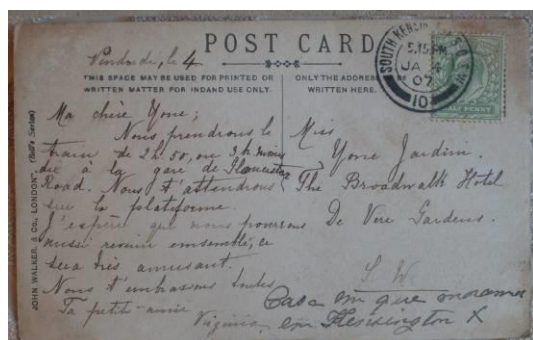 Vendredi, le 4
POST CARD
THIS SPACE MAY BE USED FOR PRINTED OR
WRITTEN MATTER FOR INLAND USE ONLY.
ONLY THE ADDRESS
WRITTEN HERE.
SOUTH KENSIN S.W.
5.15 PM
JA 4
07
10
HALF PENNY
JOHN WALKER & CO., LONDON
Ma chère Yone;
Nous prendrons le
train de 2h. 50, ou 3h moins
dix à la gare de Gloucester
Road. Nous t'attendrons
sur la plateforme.
J'espère que nous pourrons
aussi revenir ensemble, ce
sera très amusant.
Nous t'embrassons toutes
Ta petite amie
Virginia
Miss
Yone Jardim.
The Broadwalk Hotel
De Vere Gardens.
S. W.
Casa em que moramos
em Kensington X